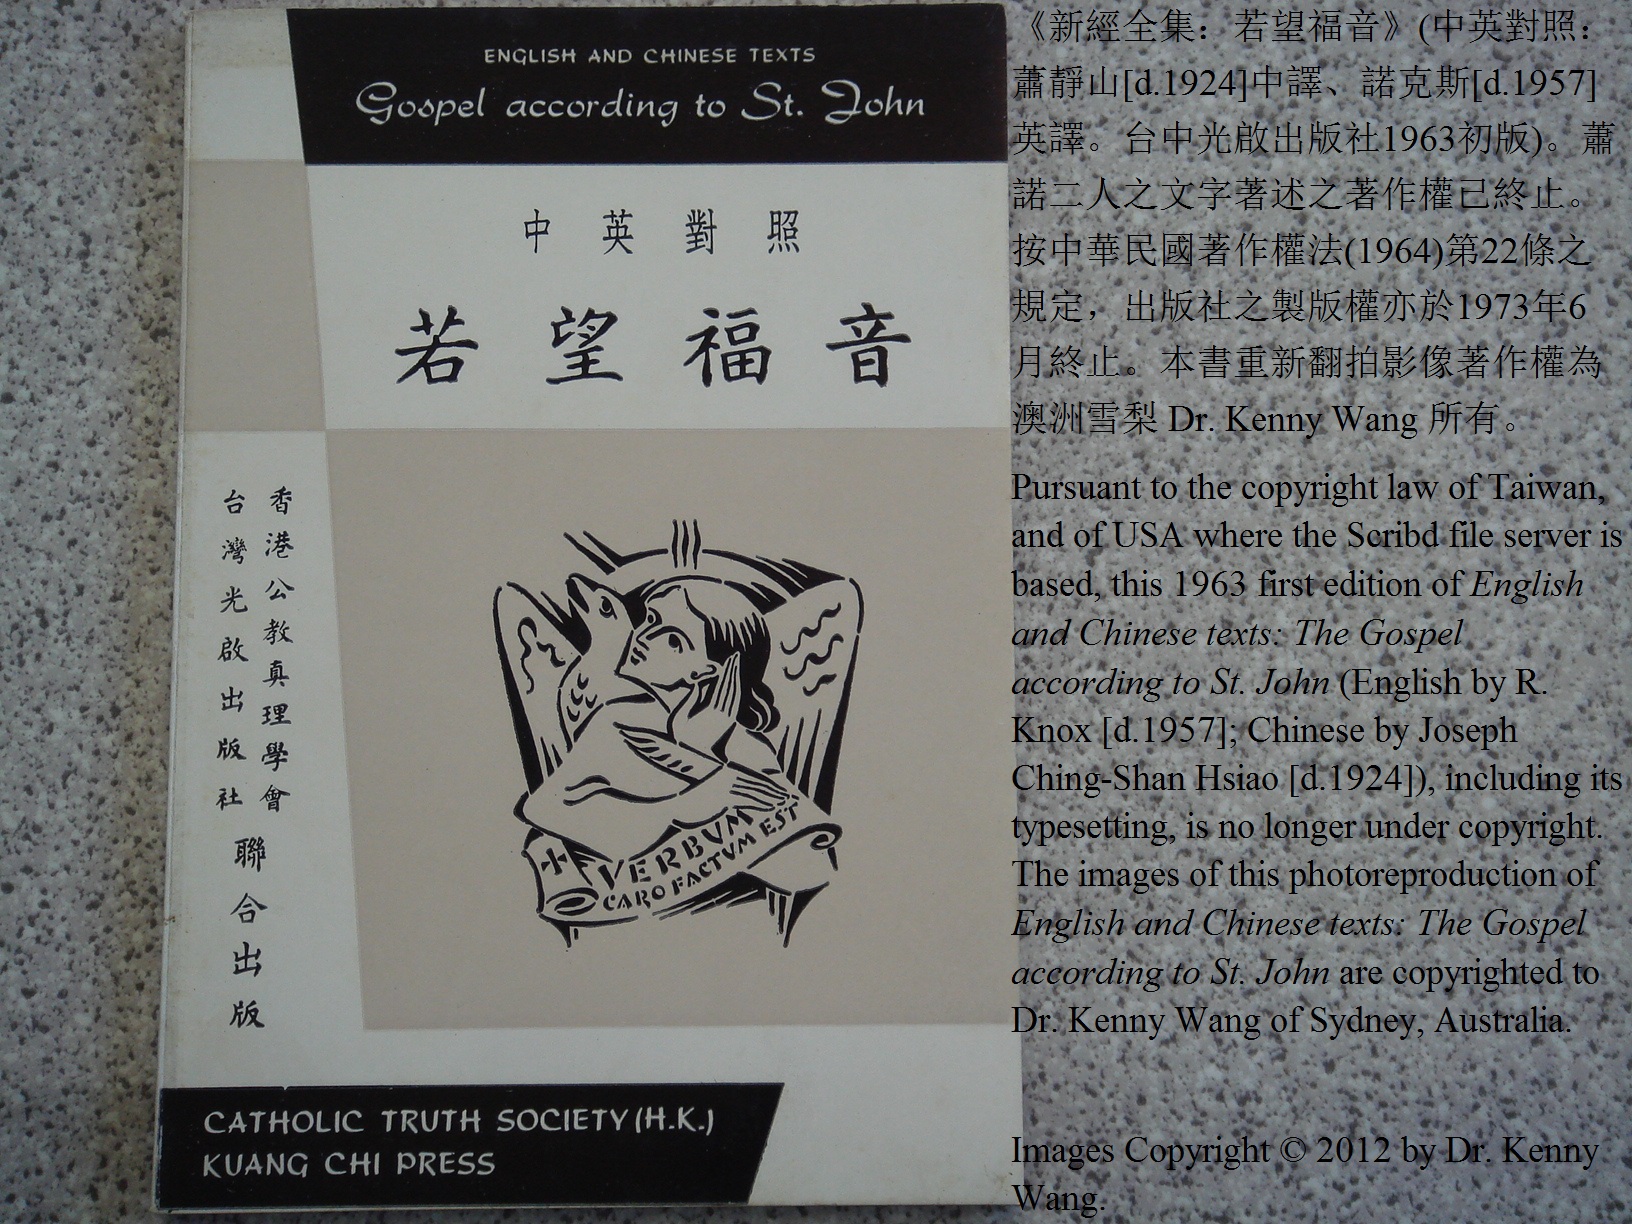 ENGLISH AND CHINESE TEXTS
Gospel according to St. John
中英對照
若望福音
香港公教真理學會
台灣光啟出版社
聯合出版
VERBVM
CARO FACTVM EST
CATHOLIC TRUTH SOCIETY (H.K.)
KUANG CHI PRESS
《新經全集：若望福音》(中英對照：
蕭靜山[d.1924]中譯、諾克斯[d.1957]
英譯。台中光啟出版社1963初版)。蕭
諾二人之文字著述之著作權己終止。
按中華民國著作權法(1964)第22條之
規定，出版社之製版權亦於1973年6
月終止。本書重新翻拍影像著作權為
澳洲雪梨 Dr. Kenny Wang 所有。
Pursuant to the copyright law of Taiwan,
and of USA where the Scribd file server is
based, this 1963 first edition of English
and Chinese texts: The Gospel
according to St. John (English by R.
Knox [d.1957]; Chinese by Joseph
Ching-Shan Hsiao [d.1924]), including its
typesetting, is no longer under copyright.
The images of this photoreproduction of
English and Chinese texts: The Gospel
according to St. John are copyrighted to
Dr. Kenny Wang of Sydney, Australia.
Images Copyright © 2012 by Dr. Kenny
Wang.